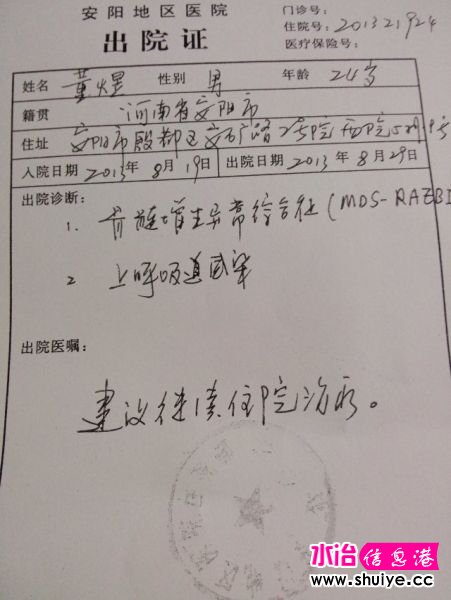 安阳地区医院
门诊号:
出院证
住院号: 201321924
医疗保险号:
姓名 董煜 性别 男 年龄 24岁
籍贯 河南省安阳市
住址 安阳市殷都区安 路2号院西院5 9号
入院日期 2013年8月19日 出院日期 2013年8月29日
出院诊断:
1. 骨髓增生异常综合征(MDS-RAEBI
2 上呼吸道感染
出院医嘱:
建议继续住院治疗。
水冶信息港
www.shuiye.cc